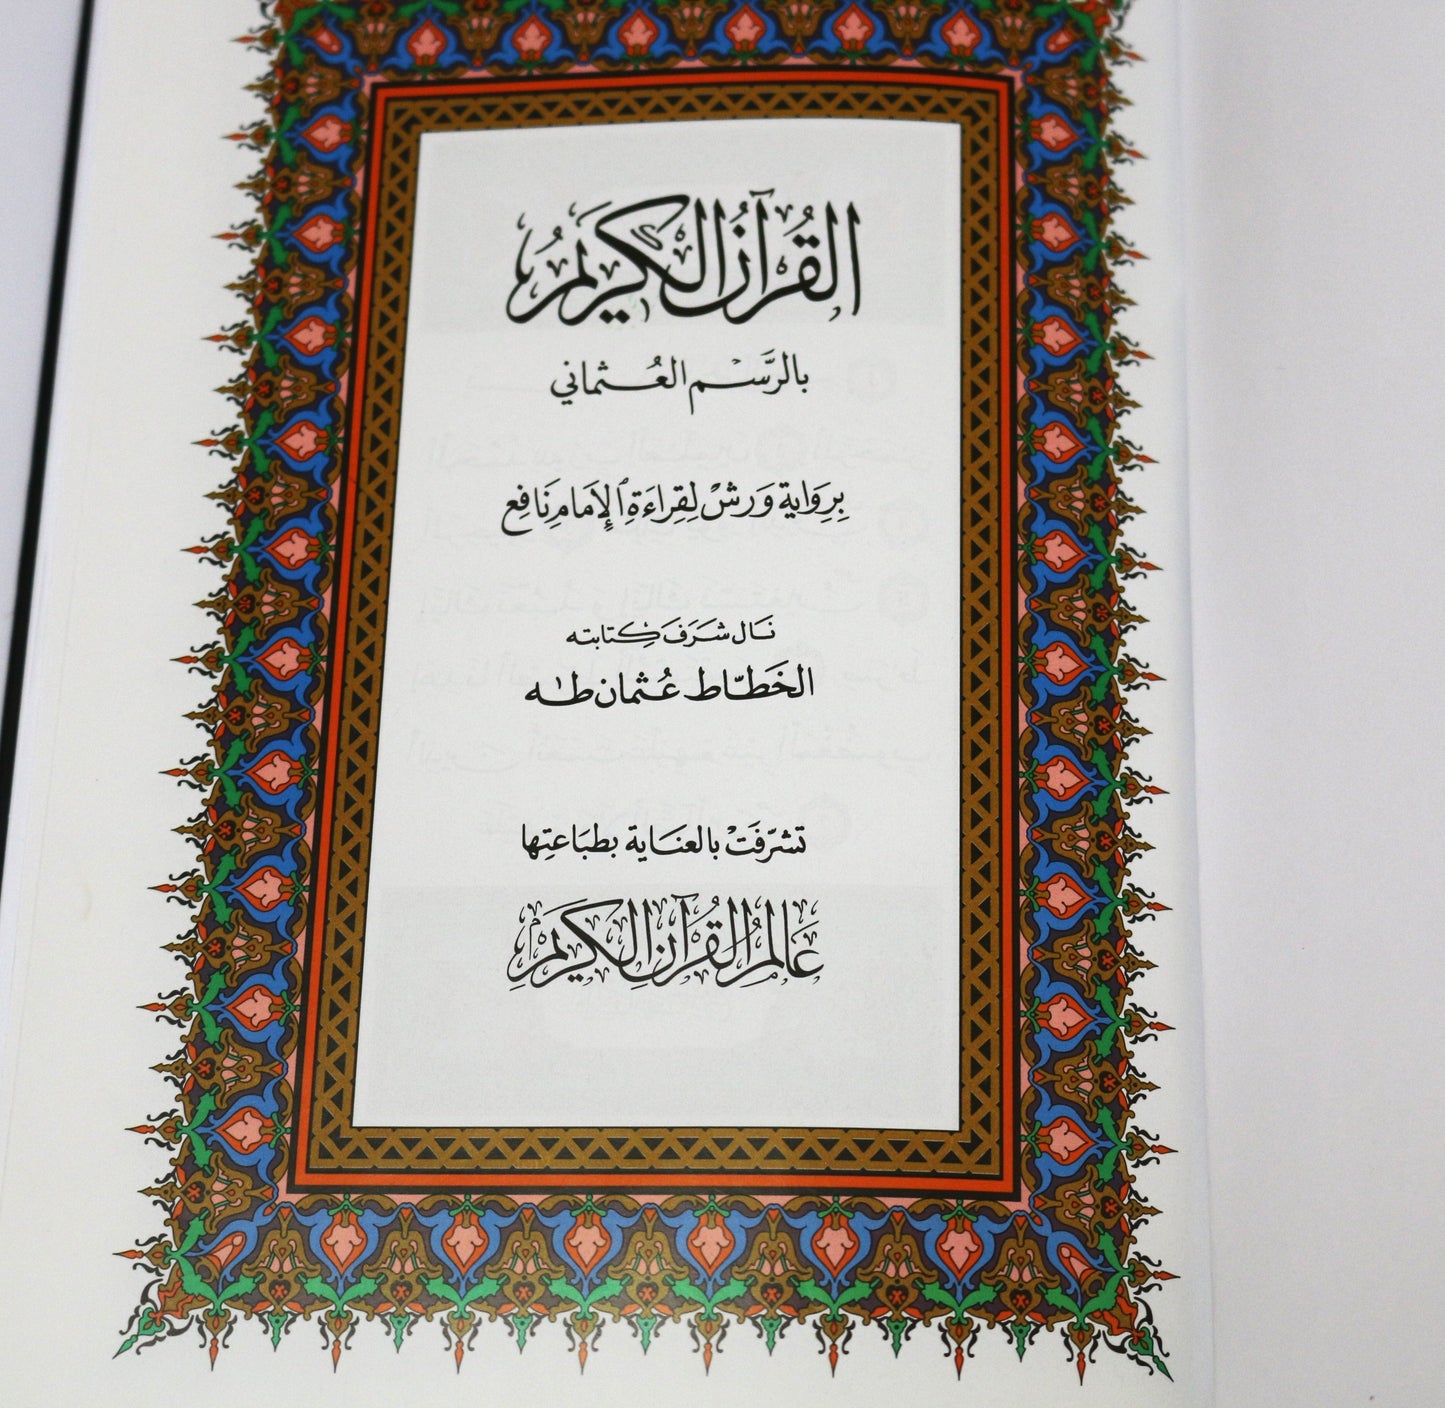 القُرآنُ الكَرِيمُ
بالرَّسْم العُثماني
بِرِوَاية وَرشْ لِقِرَاءَةِ ٱلإِمَامِ نَافِع
نَال شَرَفَ كِتابته
الخَطّاط عُثمان طٰه
تشرّفَتْ بالعنَاية بطبَاعتِها
عَالمُ القُرآنِ الكَرِيمْ